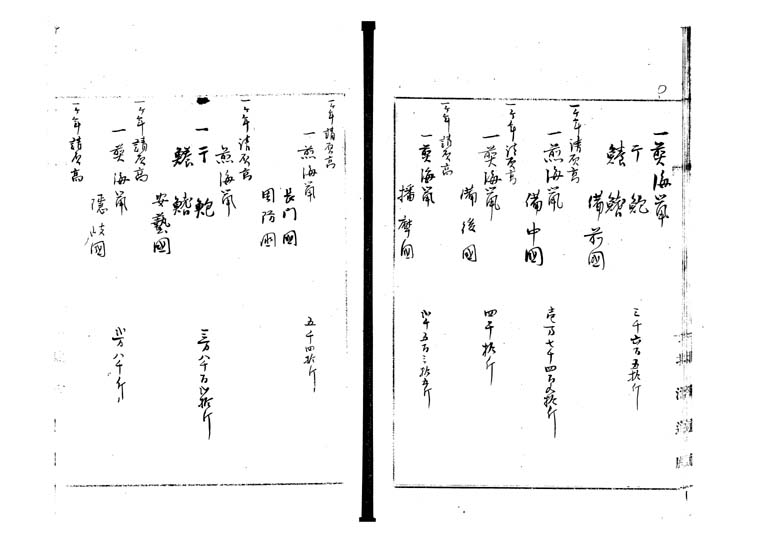 一煎海鼠
一干鮑
一鱶鰭
備前國
三千六百五拾斤
一ケ年請負高
一煎海鼠
備中國
壱万七千四百
一ケ年請負高
一煎海鼠
備後國
四千拾斤
一ケ年請負高
一煎海鼠
播磨國
千五百三拾五斤
一ケ年請負高
一煎海鼠
長門國
周防國
五千四拾斤
一ケ年請負高
煎海鼠
一干鮑
鱶鰭
安藝國
三万八千百
一ケ年請負高
一煎海鼠
隠岐國
八千斤
一ケ年請負高